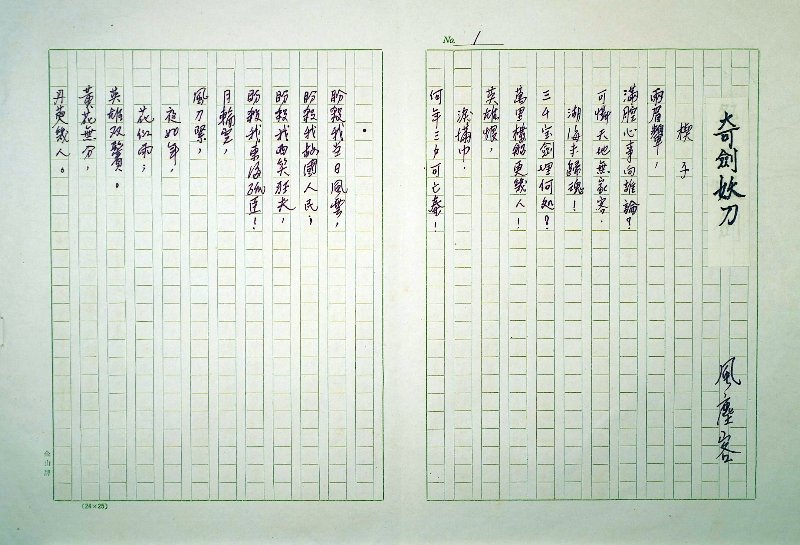 No. 1
奇劍妖刀
風塵客
楔子
兩眉顰,
滿腔心事向誰論?
可憐天地無家客.
湖海未歸魂!
三千宝劍埋何処?
萬里橫船更幾人!
英雄恨,
淚滿巾.
何年三戶可亡秦!
盼殺我当日風雲,
盼殺我故國人民;
盼殺我西笑狂夫,
盼殺我東海孤臣!
月輪空,
風刀緊,
夜如年,
花似雨;
英雄双鬢。
黃花無分,
丹萸幾人。
金山牌
(24×25)